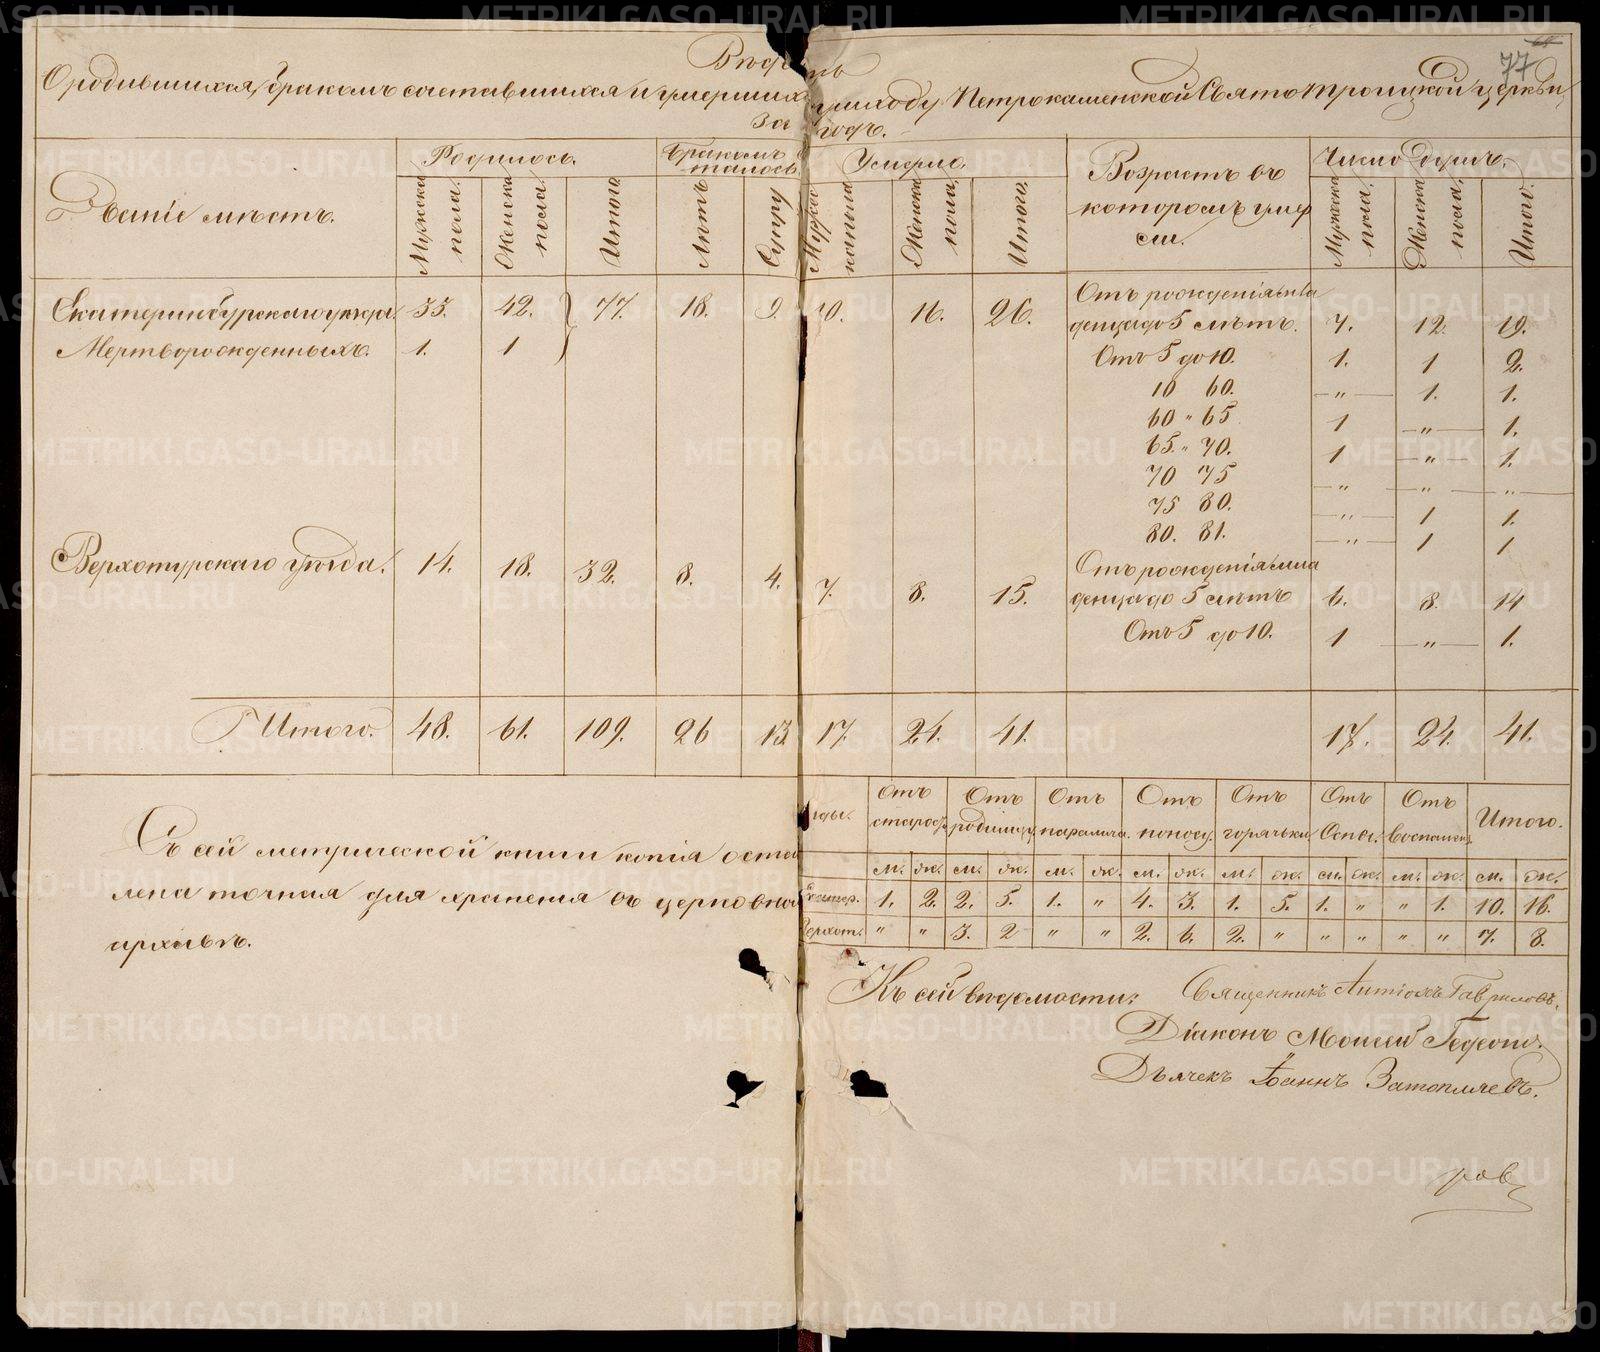 77
О родившихся, бракомъ сочетавшихся и умершихъ приходу Петрокаменской Свято Троицкой церкви,
За годъ.
Званіе мѣстъ.
Родилось.
Мужска пола.
Женска пола.
Итого
Бракомъ
Лютъ
Супру
Умерло.
Женска пола.
Итого
Возрастъ въ
которомъ умер
ли.
Число душъ.
Мужска пола.
Женска пола.
Итого.
Екатеринбургскаго уѣзда. 33. 42. 77. 18. 9. 10. 16. 26.
Мертворожденныхъ. 1. 1
Отъ рожденія мла
денца до 5 лѣтъ. 7. 12. 19.
Отъ 5 до 10. 1. 1 2.
10 60. „ 1. 1.
60 „ 65 1 „ 1.
65. „ 70. 1 „ 1.
70 75 „ „ „
75 80. „ 1 1.
80. 81. „ 1 1
Верхотурскаго уѣзда. 14. 18. 32. 8. 4. 7. 8. 15.
Отъ рожденія мла
денца до 5 лѣтъ 6. 8. 14
Отъ 5 до 10. 1 „ 1.
Итого. 48. 61. 109. 26 13. 17. 24. 41. 17. 24. 41.
Отъ старос. Отъ родимц. Отъ паралича. Отъ поносу. Отъ горячьки. Отъ Оспы. Отъ воспален. Итого.
м. ж. м. ж. м. ж. м. ж. м. ж. м. ж. м. ж. м. ж.
Екатер. 1. 2. 2. 5. 1. „ 4. 3. 1. 5. 1. „ „ 1. 10. 16.
Верхот. „ „ 3. 2 „ „ 2. 6. 2. „ „ „ „ „ 7. 8.
Съ сей метрической книги копія оста
лена точная для храненія въ церковном
архивѣ.
Къ сей вѣдомости: Священникъ Антіохъ Гавриловъ.
Діаконъ Моисей Гедеон.
Дьячекъ Іоаннъ Затопляевъ.
METRIKI.GASO-URAL.RU